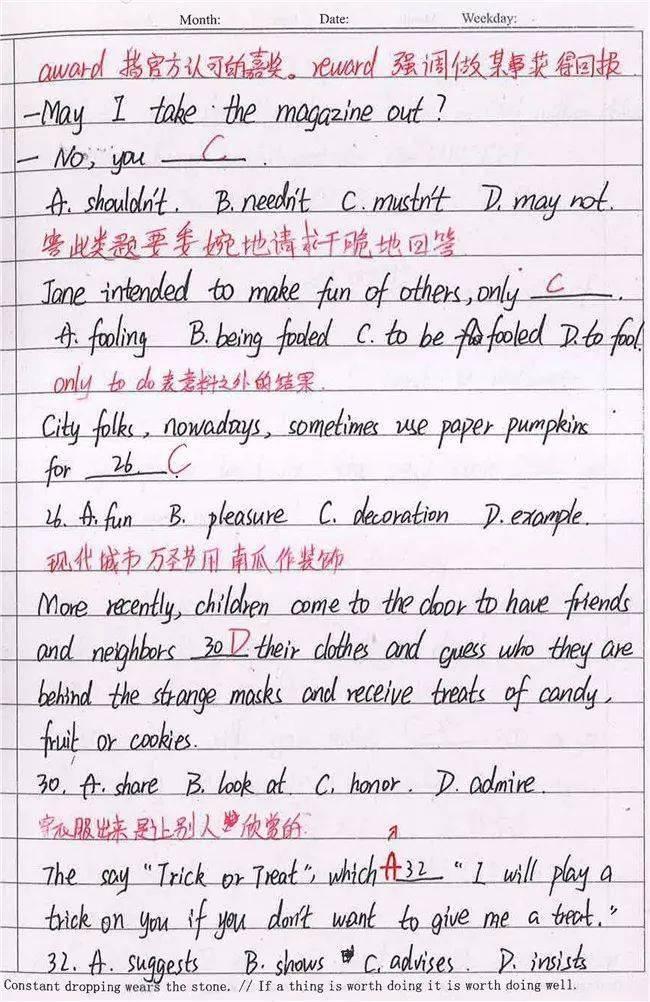 Month: Date: Weekday:
award 指官方认可的嘉奖。reward 强调做某事获得回报
—May I take the magazine out?
— No, you C.
A. shouldn't. B. needn't C. mustn't D. may not.
答此类题要委婉地请求干脆地回答
Jane intended to make fun of others, only C.
A. fooling B. being fooled C. to be fooled D. to fool.
only to do 表意料之外的结果.
City folks, nowadays, sometimes use paper pumpkins
for 26 C.
26. A. fun B. pleasure C. decoration D. example.
现代城市万圣节用南瓜作装饰
More recently, children come to the door to have friends
and neighbors 30 D their clothes and guess who they are
behind the strange masks and receive treats of candy,
fruit or cookies.
30. A. share B. look at. C. honor. D. admire.
穿衣服出来是让别人欣赏的.
The say "Trick or Treat", which A 32 "I will play a
trick on you if you don't want to give me a treat."
32. A. suggests B. shows C. advises. D. insists
Constant dropping wears the stone. // If a thing is worth doing it is worth doing well.